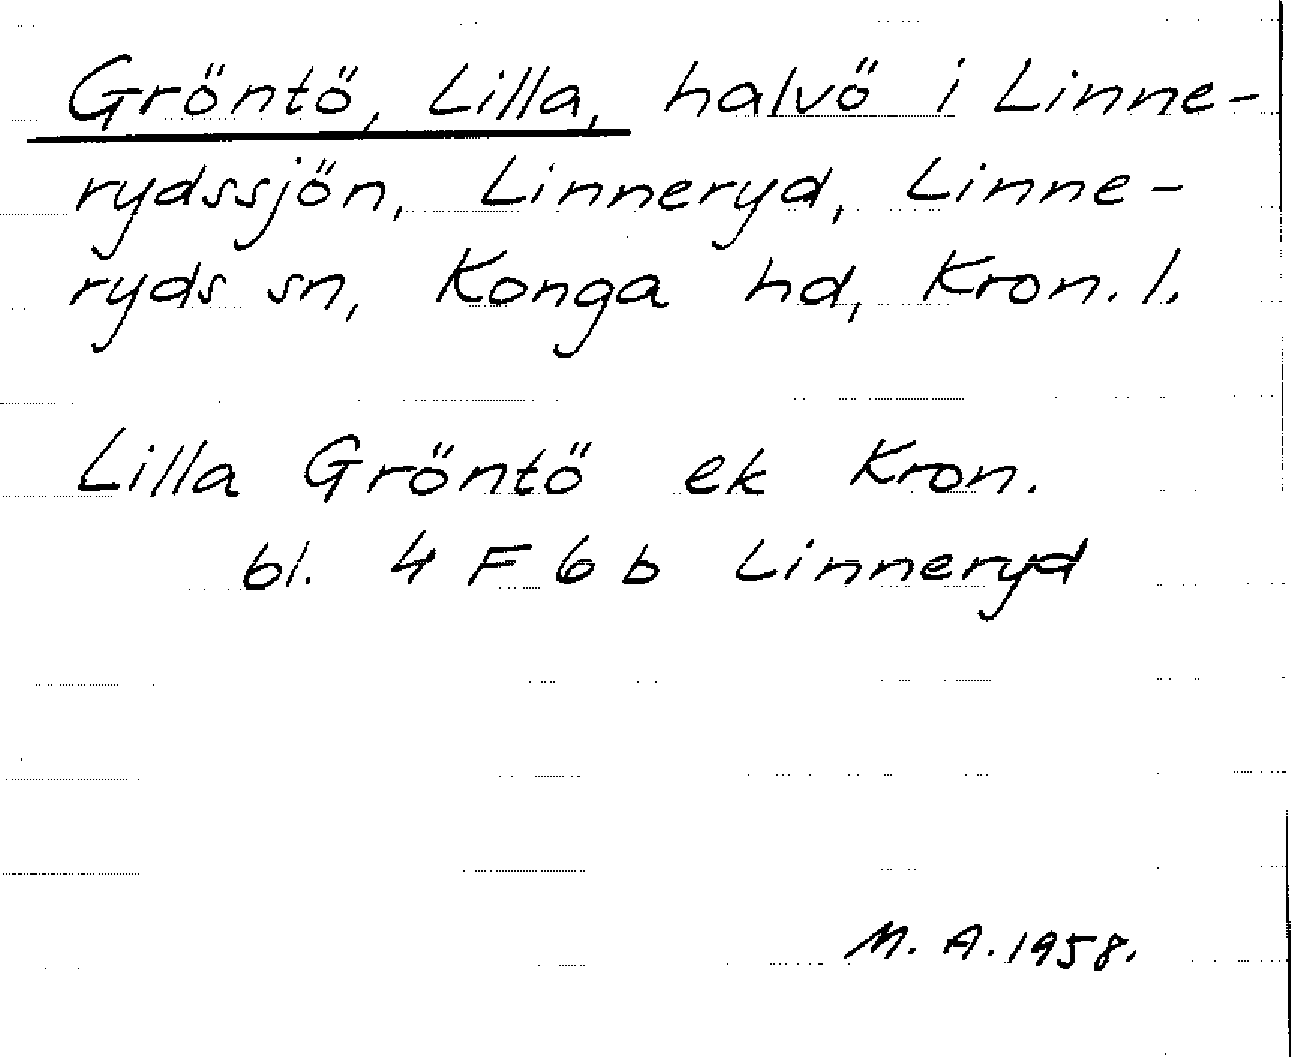 Gröntö, Lilla, halvö i Linne-
rydssjön, Linneryd, Linne-
ryds sn, Konga hd, Kron. l.
Lilla Gröntö ek Kron.
bl. 4 F 6 b Linneryd
M. A. 1958.